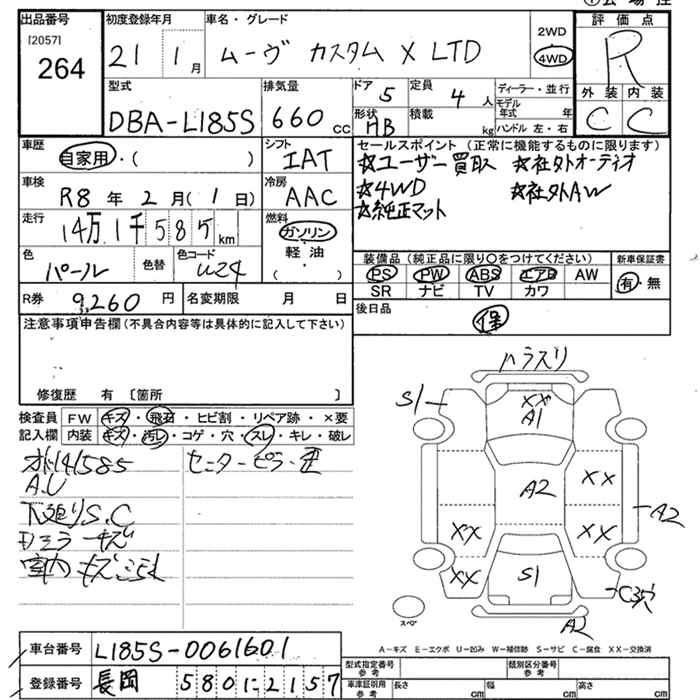 出品番号
[2057]
264
初度登録年月
21 1月
車名・グレード
ムーヴ カスタム X LTD
2WD
4WD
評価点
R
外装 内装
C C
型式
DBA-L185S
排気量
660 cc
ドア 5
定員 4人
形状 HB
積載 kg
ディーラー・並行
モデル年式 年
ハンドル 左・右
車歴
自家用・( )
シフト
IAT
車検
R8年 2月(1日)
冷房
AAC
走行
14万1千585km
燃料
ガソリン
軽油
( )
色
パール
色替
色コード
W24
R券 9,260円
名変期限 月 日
セールスポイント (正常に機能するものに限ります)
☆ユーザー買取 ☆社外オーディオ
☆4WD ☆社外AW
☆純正マット
装備品(純正品に限り○をつけてください)
新車保証書
PS PW ABS エアB AW
SR ナビ TV カワ
有・無
後日品
保
注意事項申告欄(不具合内容等は具体的に記入して下さい)
修復歴 有 〔箇所 〕
検査員記入欄
FW キズ・飛石・ヒビ割・リペア跡・×要
内装 キズ・汚レ・コゲ・穴・スレ・キレ・破レ
オドメ141585 センターピラー歪
A.U
下廻りS.C
Dミラーキズ
室内キズこゴレ
ハラスリ
S1
XX
A1
A2
XX
A2
XX
XX
XX
S1
C3穴
A2
スペア
A-キズ E-エクボ U-凹み W-補修跡 S-サビ C-腐食 XX-交換済
車台番号 L185S-0061601
登録番号 長岡 580 に 2157
型式指定番号
参考
類別区分番号
参考
車庫証明用
参考
長さ cm
幅 cm
高さ cm